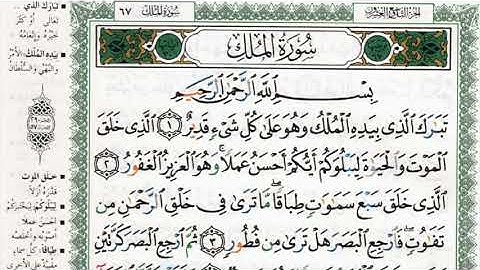 سُورَةُ المُلْكِ
٦٧
الجزء التاسع والعشرون
سُورَةُ المُلْكِ
بِسْمِ اللَّهِ الرَّحْمَٰنِ الرَّحِيمِ
تَبَٰرَكَ ٱلَّذِى بِيَدِهِ ٱلْمُلْكُ وَهُوَ عَلَىٰ كُلِّ شَىْءٍ قَدِيرٌ ﴿١﴾ ٱلَّذِى خَلَقَ
ٱلْمَوْتَ وَٱلْحَيَوٰةَ لِيَبْلُوَكُمْ أَيُّكُمْ أَحْسَنُ عَمَلًا ۚ وَهُوَ ٱلْعَزِيزُ ٱلْغَفُورُ ﴿٢﴾
ٱلَّذِى خَلَقَ سَبْعَ سَمَٰوَٰتٍ طِبَاقًا ۖ مَّا تَرَىٰ فِى خَلْقِ ٱلرَّحْمَٰنِ مِن
تَفَٰوُتٍ ۖ فَٱرْجِعِ ٱلْبَصَرَ هَلْ تَرَىٰ مِن فُطُورٍ ﴿٣﴾ ثُمَّ ٱرْجِعِ ٱلْبَصَرَ كَرَّتَيْنِ
تبارك الذي
تعالى أو كثر
خيره وإنعامه
بيده الملك الأمر
والنهي والسلطان
خلق الموت
قدره أزلا
ليبلوكم ليختبركم
أحسن عملا
أصوبه وأخلصه
طباقا كل سماء
مقبية على الأخرى